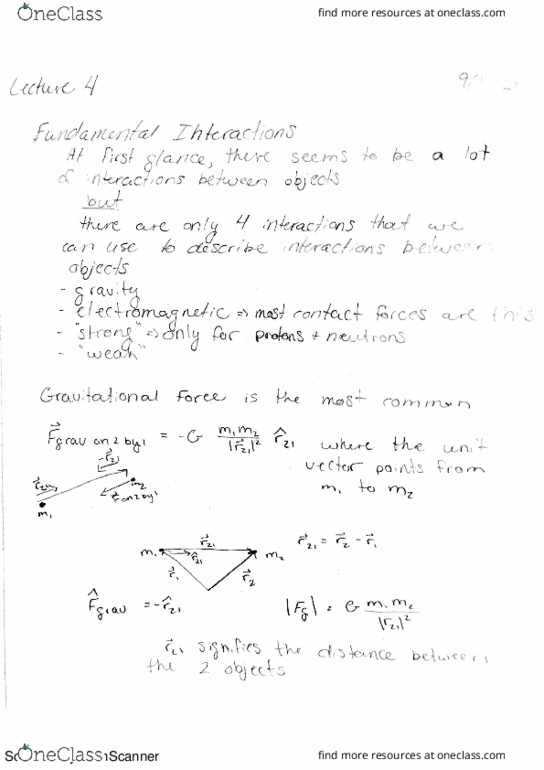 OneClass
find more resources at oneclass.com
Lecture 4
Fundamental Interactions
At first glance, there seems to be a lot
of interactions between objects
but
there are only 4 interactions that we
can use to describe interactions between
objects
- gravity
- electromagnetic => most contact forces are this
- "strong" => only for protons + neutrons
- "weak"
Gravitational Force is the most common
F⃗grav on 2 by 1 = -G m₁m₂/|r⃗₂₁|² r̂₂₁ where the unit
vector points from
m₁ to m₂
-r⃗₂₁
r⃗₂₁
m₂
F⃗ on 2 by 1
m₁
m₁ r⃗₂₁ m₂ r⃗₂₁ = r⃗₂ - r⃗₁
r̂₂₁
r⃗₁ r⃗₂
F̂grav = -r̂₂₁ |Fg| = G m₁m₂/|r⃗₂₁|²
r⃗₂₁ signifies the distance between
the 2 objects
OneClass
Scanner
find more resources at oneclass.com